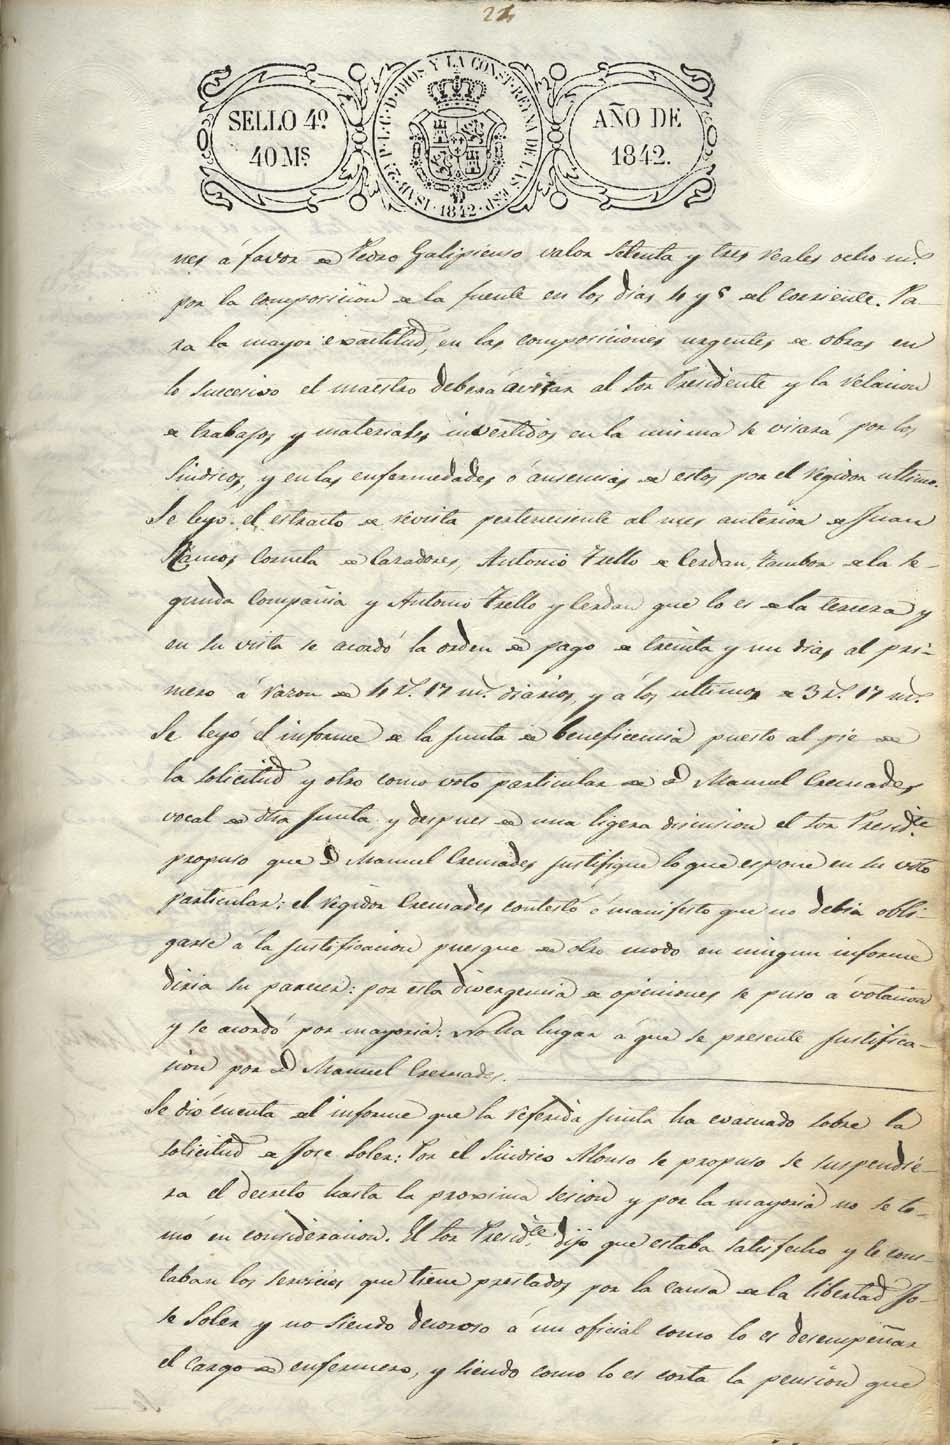 24
SELLO 4º
40 Mˢ
ISAB. 2ª P. L. G. D. DIOS Y LA CONST. REYNA DE LAS ESP. 1842
AÑO DE
1842.
nes á favor de Pedro Galipienso valor setenta y tres reales ocho mˢ.
por la composicion de la fuente en los dias 4 y 5 del corriente. Pa-
ra la mayor exactitud, en las composiciones urgentes de obras en
lo sucesivo el maestro deberá avisar al Sor Presidente y la relacion
de trabajos y materiales invertidos en la misma se visará por los
Sindicos, y en las enfermedades ó ausencias de estos por el regidor ultimo.
Se leyó el estracto de revista perteneciente al mes anterior de Juan
Ramos Corneta de Cazadores, Antonio Trello de Cerdan, tambor de la se-
gunda Compañia y Antonio Trello y Cerdan que lo es de la tercera y
en su vista se acordó la orden de pago de treinta y un dias al pri-
mero á razon de 4 rˢ. 17 mˢ. diarios, y á los ultimos de 3 rˢ. 17 mˢ.
Se leyó el informe de la Junta de beneficencia puesto al pie de
la solicitud y otro como voto particular de D Manuel Cremades
vocal de dha Junta y despues de una ligera discusion el Sor Presidᵗᵉ
propuso que D Manuel Cremades justifique lo que espone en su voto
particular: el regidor Cremades contestó é manifesto que no debia obli-
garse á la justificacion puesque de otro modo en ningun informe
diria su parecer: por esta divergencia de opiniones se puso á votacion
y se acordó por mayoria: No ha lugar á que se presente justifica-
cion por D Manuel Cremades.
Se dió cuenta del informe que la referida Junta ha evacuado sobre la
solicitud de Jose Soler: Por el Sindico Alonso se propuso se suspendie-
ra el decreto hásta la proxima sesion y por la mayoria no se to-
mó en consideracion. El Sor Presidᵗᵉ. dijo que estaba satisfecho y le cons-
taban los servicios que tiene prestados por la causa de la libertad Jo-
se Soler y no siendo decoroso á un oficial como lo es desempeñar
el cargo de enfermero, y siendo como lo es corta la pension que